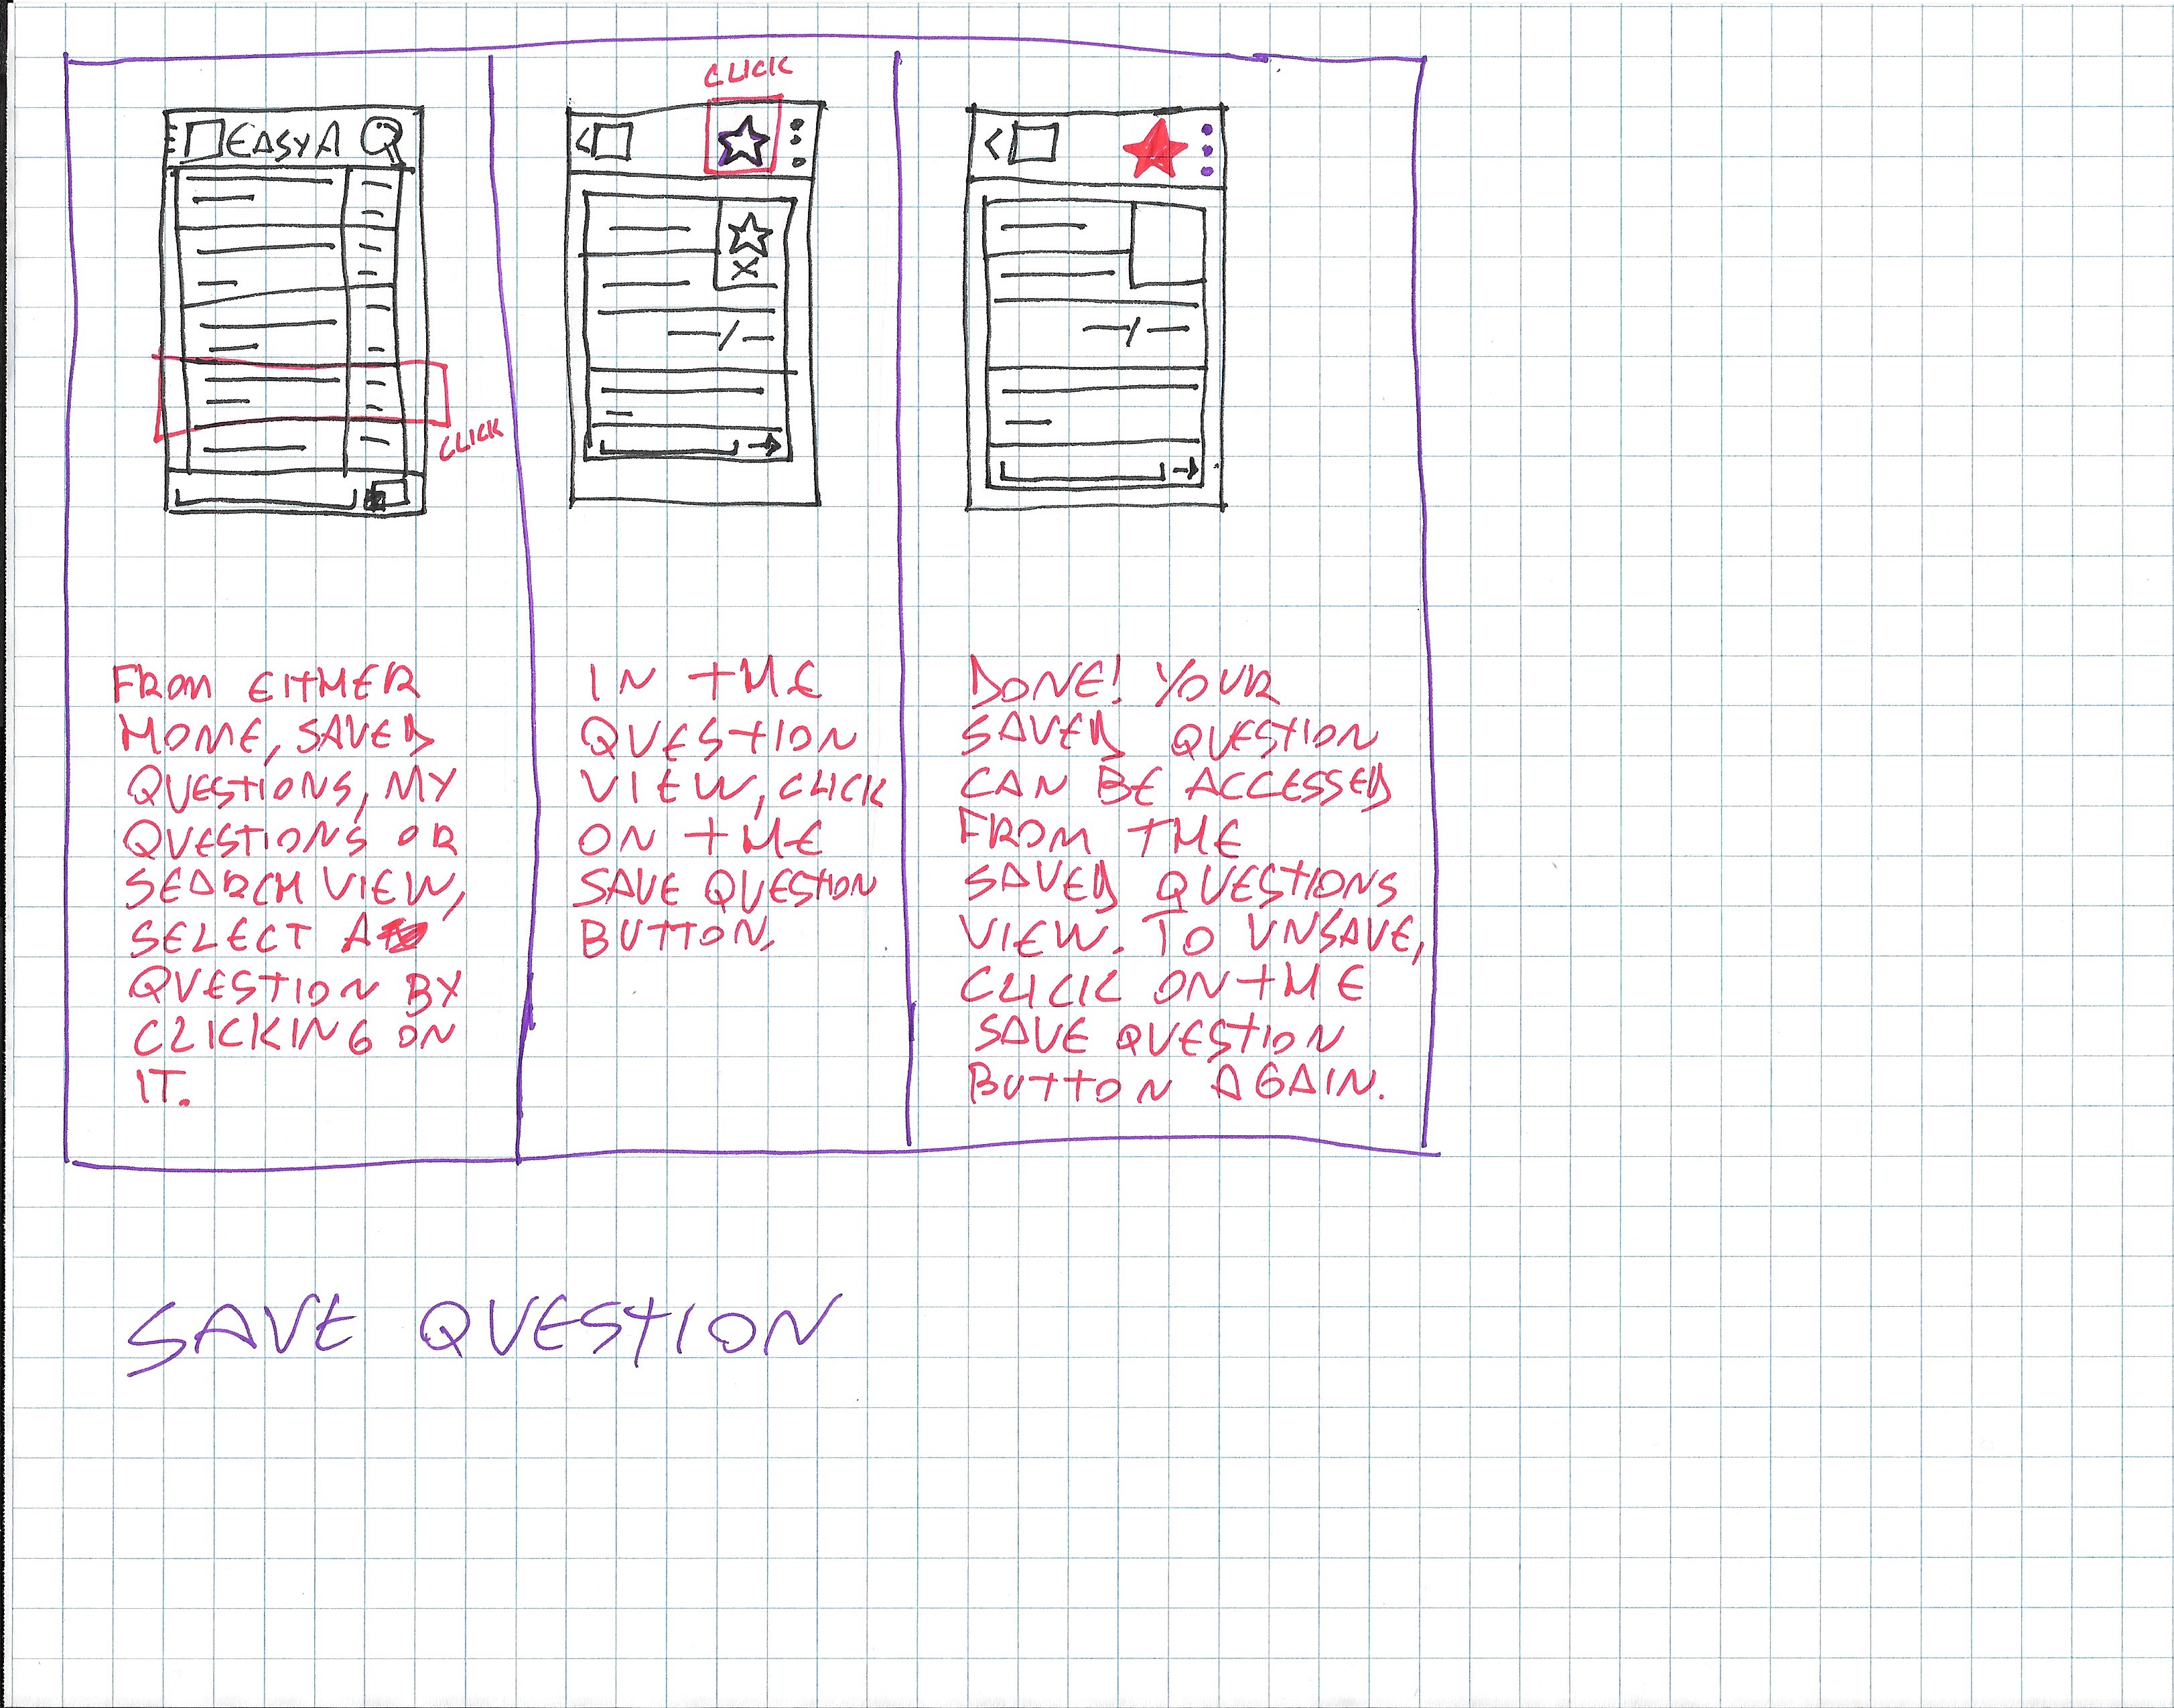 CLICK
EASYA
CLICK
FROM EITHER
HOME, SAVED
QUESTIONS, MY
QUESTIONS OR
SEARCH VIEW,
SELECT A
QUESTION BY
CLICKING ON
IT.
IN THE
QUESTION
VIEW, CLICK
ON THE
SAVE QUESTION
BUTTON.
DONE! YOUR
SAVED QUESTION
CAN BE ACCESSED
FROM THE
SAVED QUESTIONS
VIEW. TO UNSAVE,
CLICK ON THE
SAVE QUESTION
BUTTON AGAIN.
SAVE QUESTION